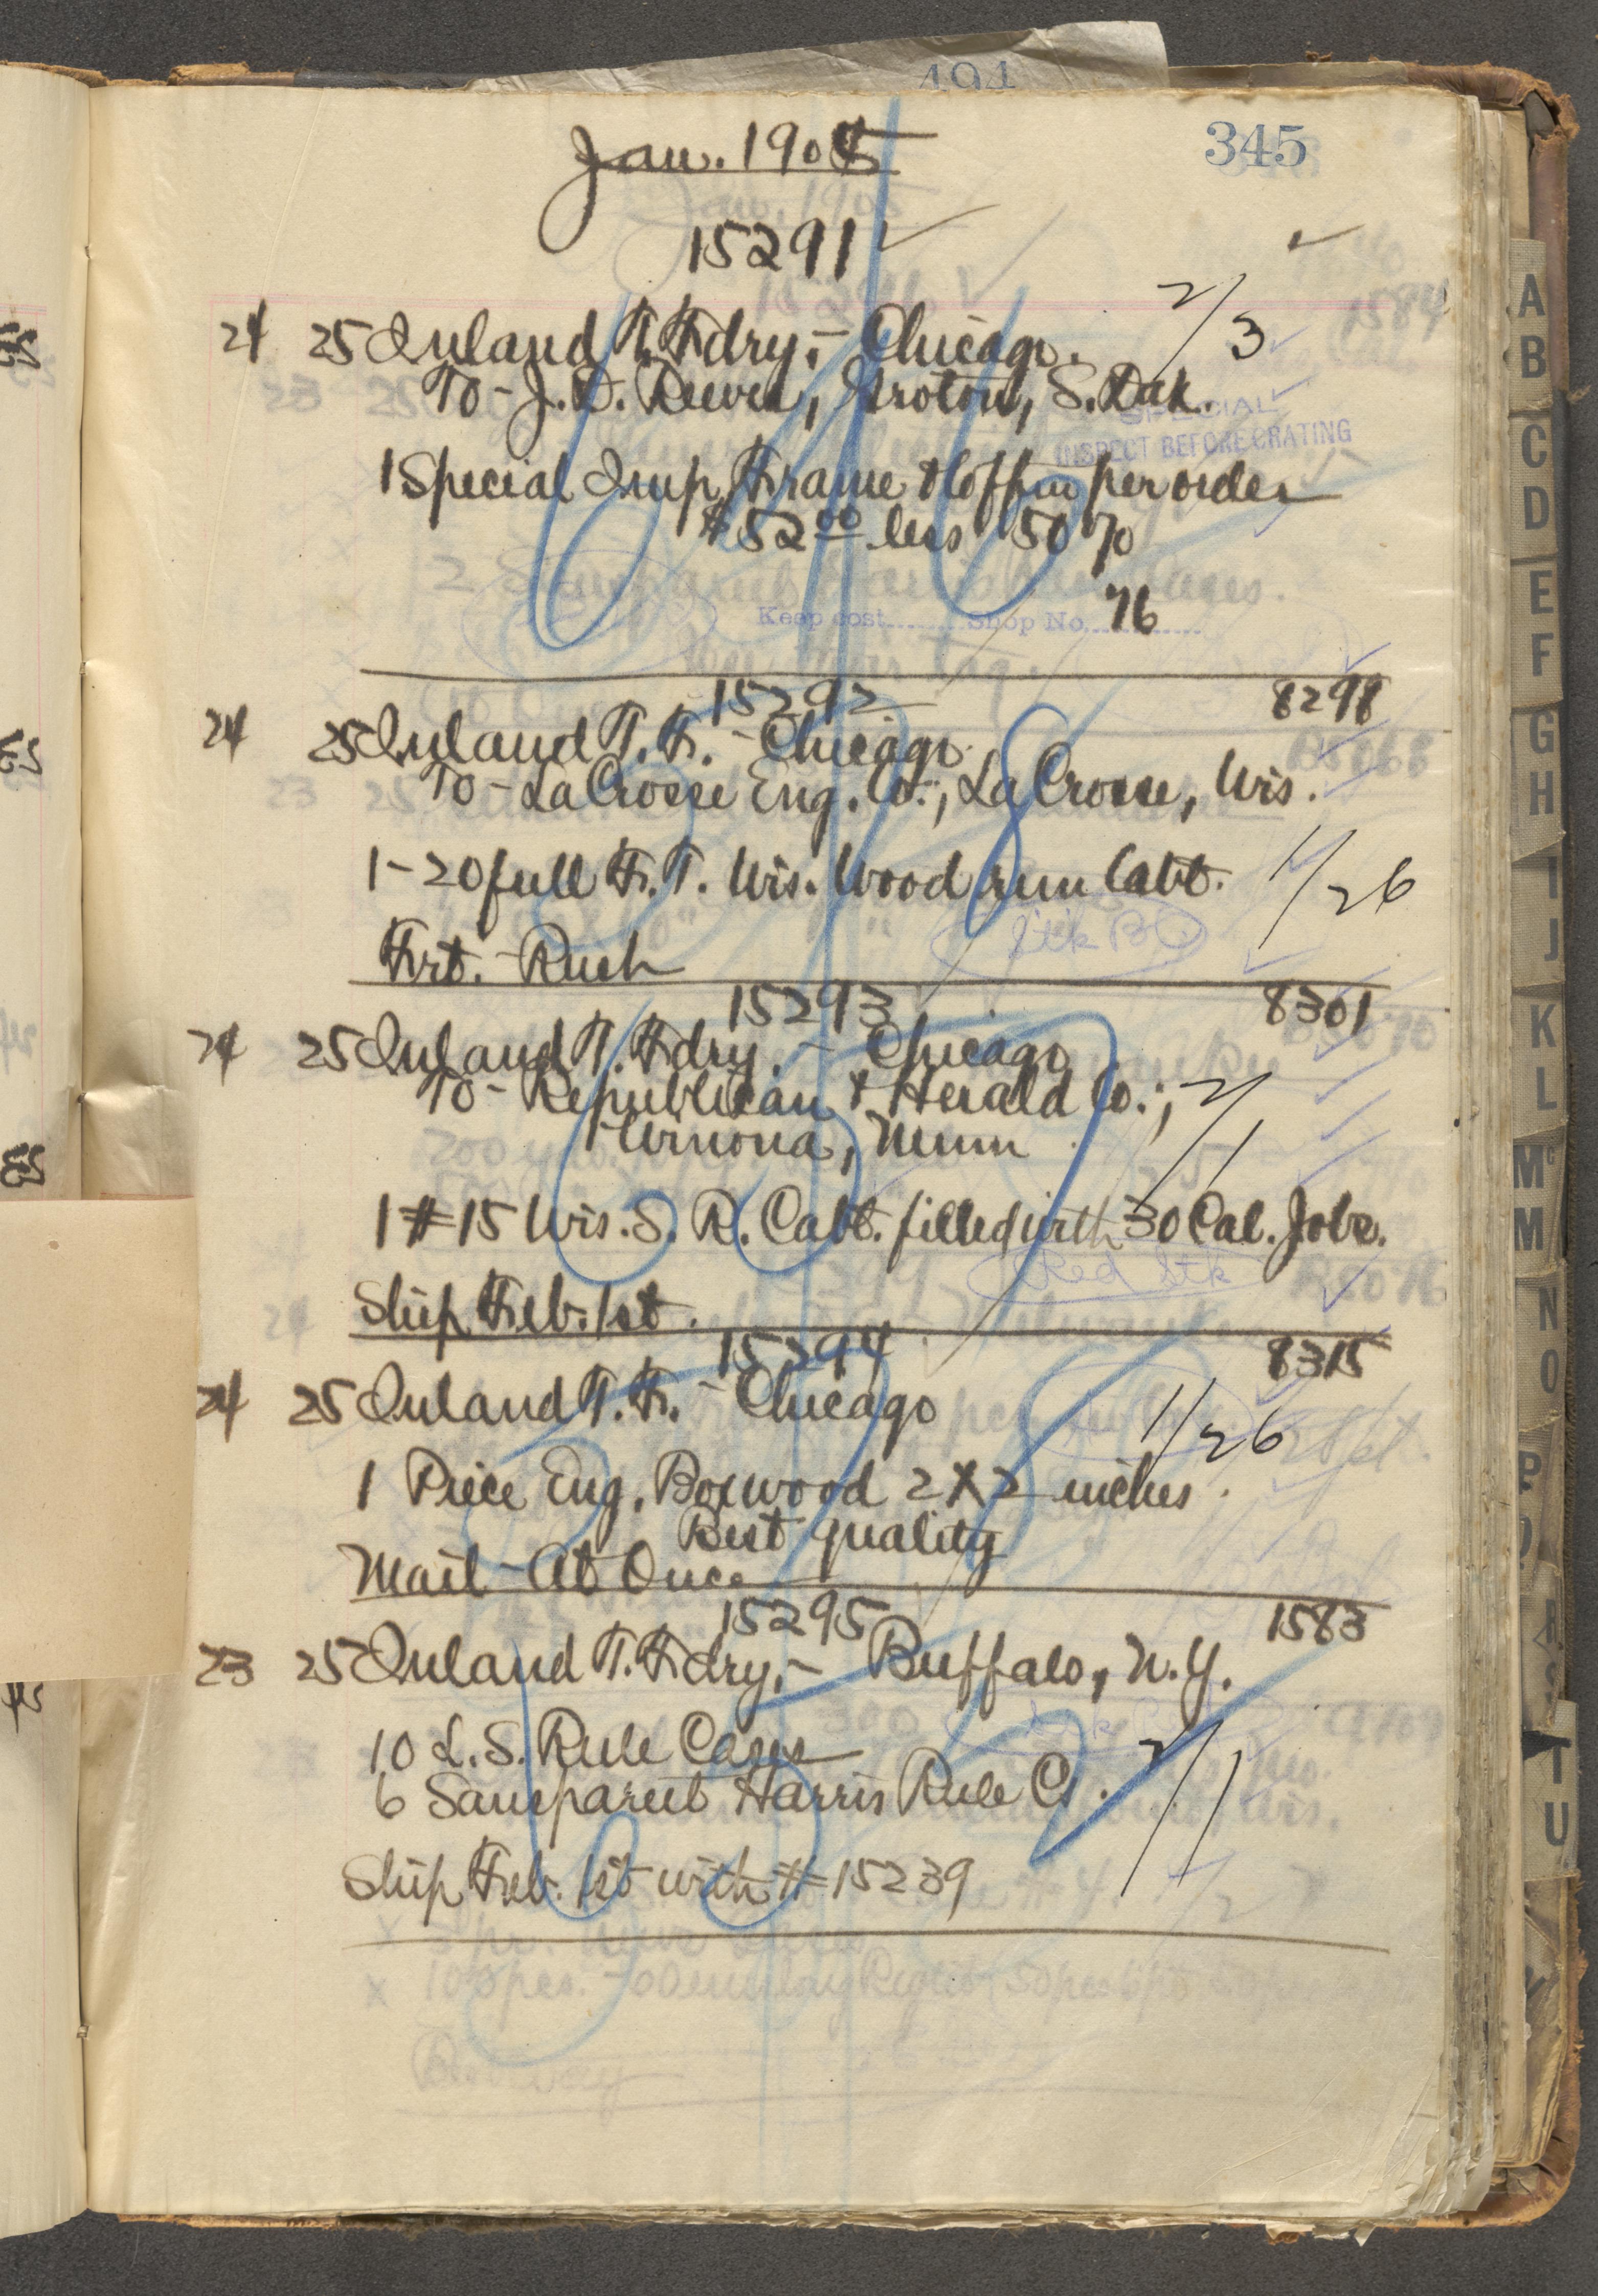 494
345
Jan. 1905
15291 ✓
2/3
24 25 Inland T. Fdry,- Chicago.
To - J. D. Reeves, Groton, S. Dak.
SPECIAL
INSPECT BEFORE CRATING
1 Special Imp. Frame & Coffin per order
$52 00 less 50%
Keep cost........ Shop No. 76
15292 8298
24 25 Inland T. F. - Chicago.
To - La Crosse Eng. Co., La Crosse, Wis.
1 - 20 full F. T. Wis. Wood run Cabt. 1/26
Stk
Frt. - Rush
15293 8301
24 25 Inland T. Fdry. - Chicago
To - Republican & Herald Co., 2/1
Winona, Minn.
1 #15 Wis. S. R. Cabt. filled with 30 Cal. Jobs.
Red Stk
Ship Feb. 1st.
15294 8315
24 25 Inland T. F. - Chicago
1/26
1 Piece Eng. Boxwood 2 X 2 inches.
Best quality
Mail - At Once
15295 1583
23 25 Inland T. Fdry,- Buffalo, N.Y.
10 L. S. Rule Cases 2/1
6 Sanspareil Harris Rule Cs.
Ship Feb. 1st with #15239
A
B
C
D
E
F
G
H
I
J
K
L
Mc
M
N
O
P
T
U